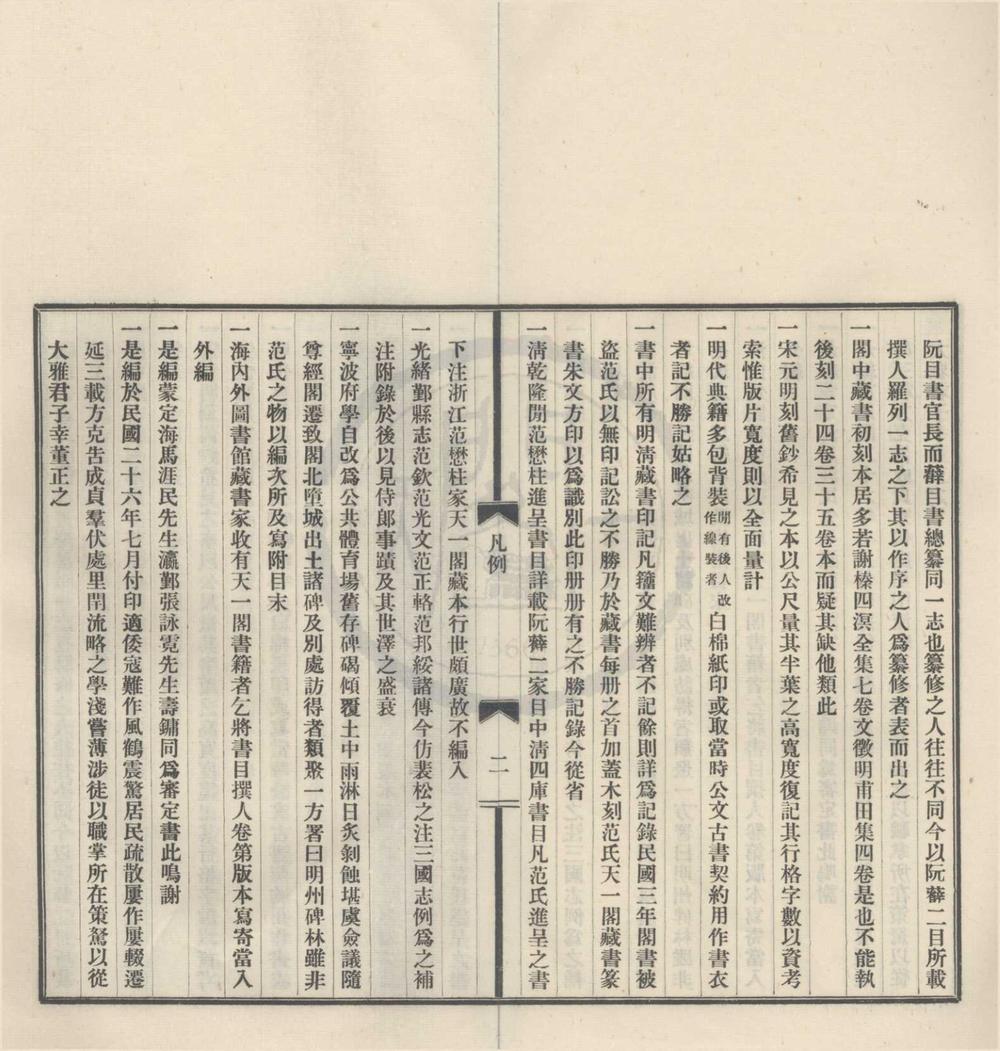 阮目書官長而薛目書總纂同一志也纂修之人往往不同今以阮薛二目所載
撰人羅列一志之下其以作序之人爲纂修者表而出之
一閣中藏書初刻本居多若謝榛四溟全集七卷文徵明甫田集四卷是也不能執
後刻二十四卷三十五卷本而疑其缺他類此
一宋元明刻舊鈔希見之本以公尺量其半葉之高寬度復記其行格字數以資考
索惟版片寬度則以全面量計
一明代典籍多包背裝閒有後人改作線裝者白棉紙印或取當時公文古書契約用作書衣
者記不勝記姑略之
一書中所有明淸藏書印記凡籀文難辨者不記餘則詳爲記錄民國三年閣書被
盜范氏以無印記訟之不勝乃於藏書每册之首加蓋木刻范氏天一閣藏書篆
書朱文方印以爲識別此印册册有之不勝記錄今從省
一淸乾隆閒范懋柱進呈書目詳載阮薛二家目中淸四庫書目凡范氏進呈之書
凡例
二
下注浙江范懋柱家天一閣藏本行世頗廣故不編入
一光緒鄞縣志范欽范光文范正輅范邦綏諸傳今仿裴松之注三國志例爲之補
注附錄於後以見侍郞事蹟及其世澤之盛衰
一寧波府學自改爲公共體育場舊存碑碣傾覆土中雨淋日炙剝蝕堪虞僉議隨
尊經閣遷致閣北墮城出土諸碑及別處訪得者類聚一方署曰明州碑林雖非
范氏之物以編次所及寫附目末
一海內外圖書館藏書家收有天一閣書籍者乞將書目撰人卷第版本寫寄當入
外編
一是編蒙定海馬涯民先生瀛鄞張詠霓先生壽鏞同爲審定書此鳴謝
一是編於民國二十六年七月付印適倭寇難作風鶴震驚居民疏散屢作屢輟遷
延三載方克告成貞羣伏處里閈流略之學淺嘗薄涉徒以職掌所在策駑以從
大雅君子幸董正之